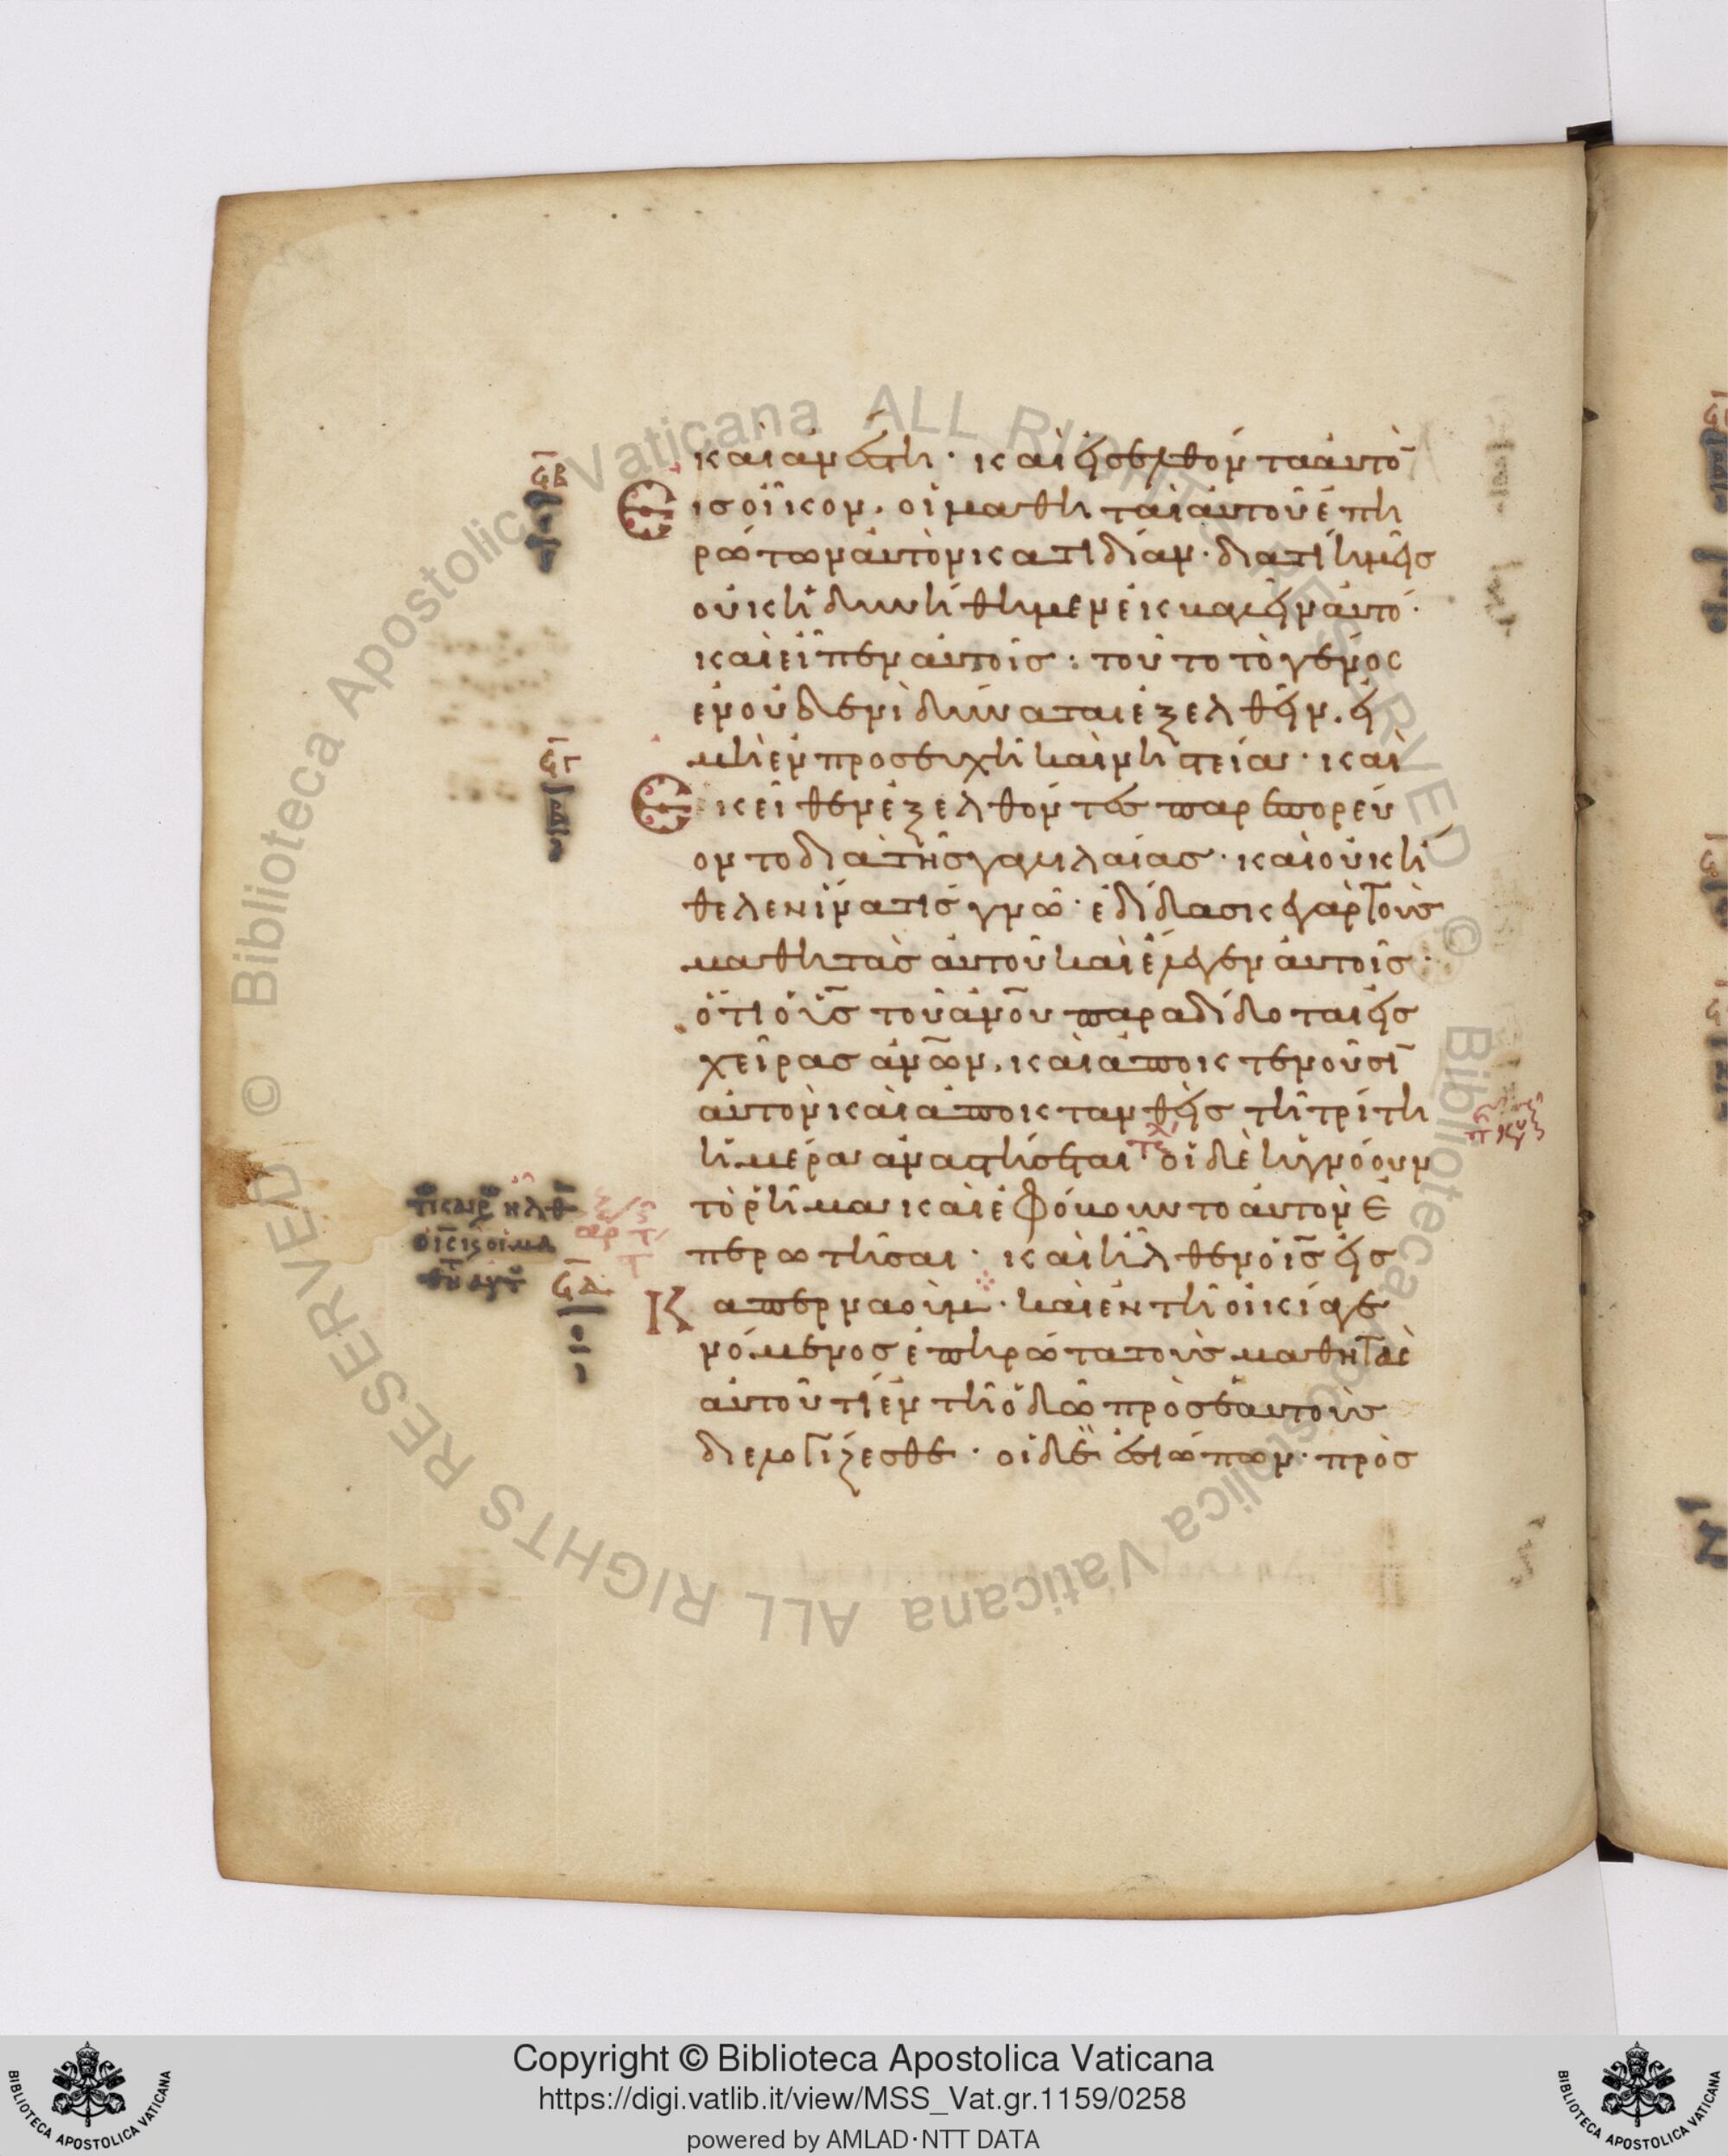 καὶ ἀνέστη· καὶ εἰσελθόντα αὐτὸ̄
Εἰς οἶκον. οἱ μαθηταὶ αὐτοῦ ἐπη
ρώτων αὐτὸν κατιδίαν· διατί ἡμεῖς
οὐκ ἠδυνήθημεν ἐκβαλεῖν αὐτό·
καὶ εἶπεν αὐτοῖς: τοῦτο τὸ γένος
ἐν οὐδενὶ δύναται ἐξελθεῖν. εἰ
μὴ ἐν προσευχῆ καὶ νηστεία· καὶ
Ἐκεῖθεν ἐξελθόντες παρεπορεύ
οντο διὰ τῆς γαλιλαίας· καὶ οὐκ ἤ
θελεν ἵνα τίς γνῶ· ἐδίδασκε γὰρ τοὺς
μαθητὰς αὐτοῦ καὶ ἔλεγεν αὐτοῖς·
ὅτι ὁ ὑ̅ς̅ τοῦ ἀ̅ν̅ο̅υ̅ παραδίδοται εἰς
χεῖρας ἀ̅ν̅ω̅ν̅. καὶ ἀποκτενοῦσῑ
αὐτὸν καὶ ἀποκτανθεὶς τῆ τρίτη
ἡμέρα ἀναστήσεται· οἱ δὲ ἠγνόουν
τὸ ῥῆμα καὶ ἐφοβοῦντο αὐτὸν ἐ
περωτῆσαι· καὶ ἦλθεν ὁ ι̅ς̅ εἰς
Καπερναοὺμ· καὶ ἐν τῆ οἰκία γε
νόμενος ἐπηρώτα τοὺς μαθητὰς
αὐτοῦ τί ἐν τῆ ὁδῶ πρὸς ἑαυτοὺς
διελογίζεσθε· οἱ δὲ ἐσιώπων· πρὸς
Copyright © Biblioteca Apostolica Vaticana
https://digi.vatlib.it/view/MSS_Vat.gr.1159/0258
powered by AMLAD·NTT DATA
BIBLIOTECA APOSTOLICA VATICANA
BIBLIOTECA APOSTOLICA VATICANA
© Biblioteca Apostolica Vaticana ALL RIGHTS RESERVED
© Biblioteca Apostolica Vaticana ALL RIGHTS RESERVED